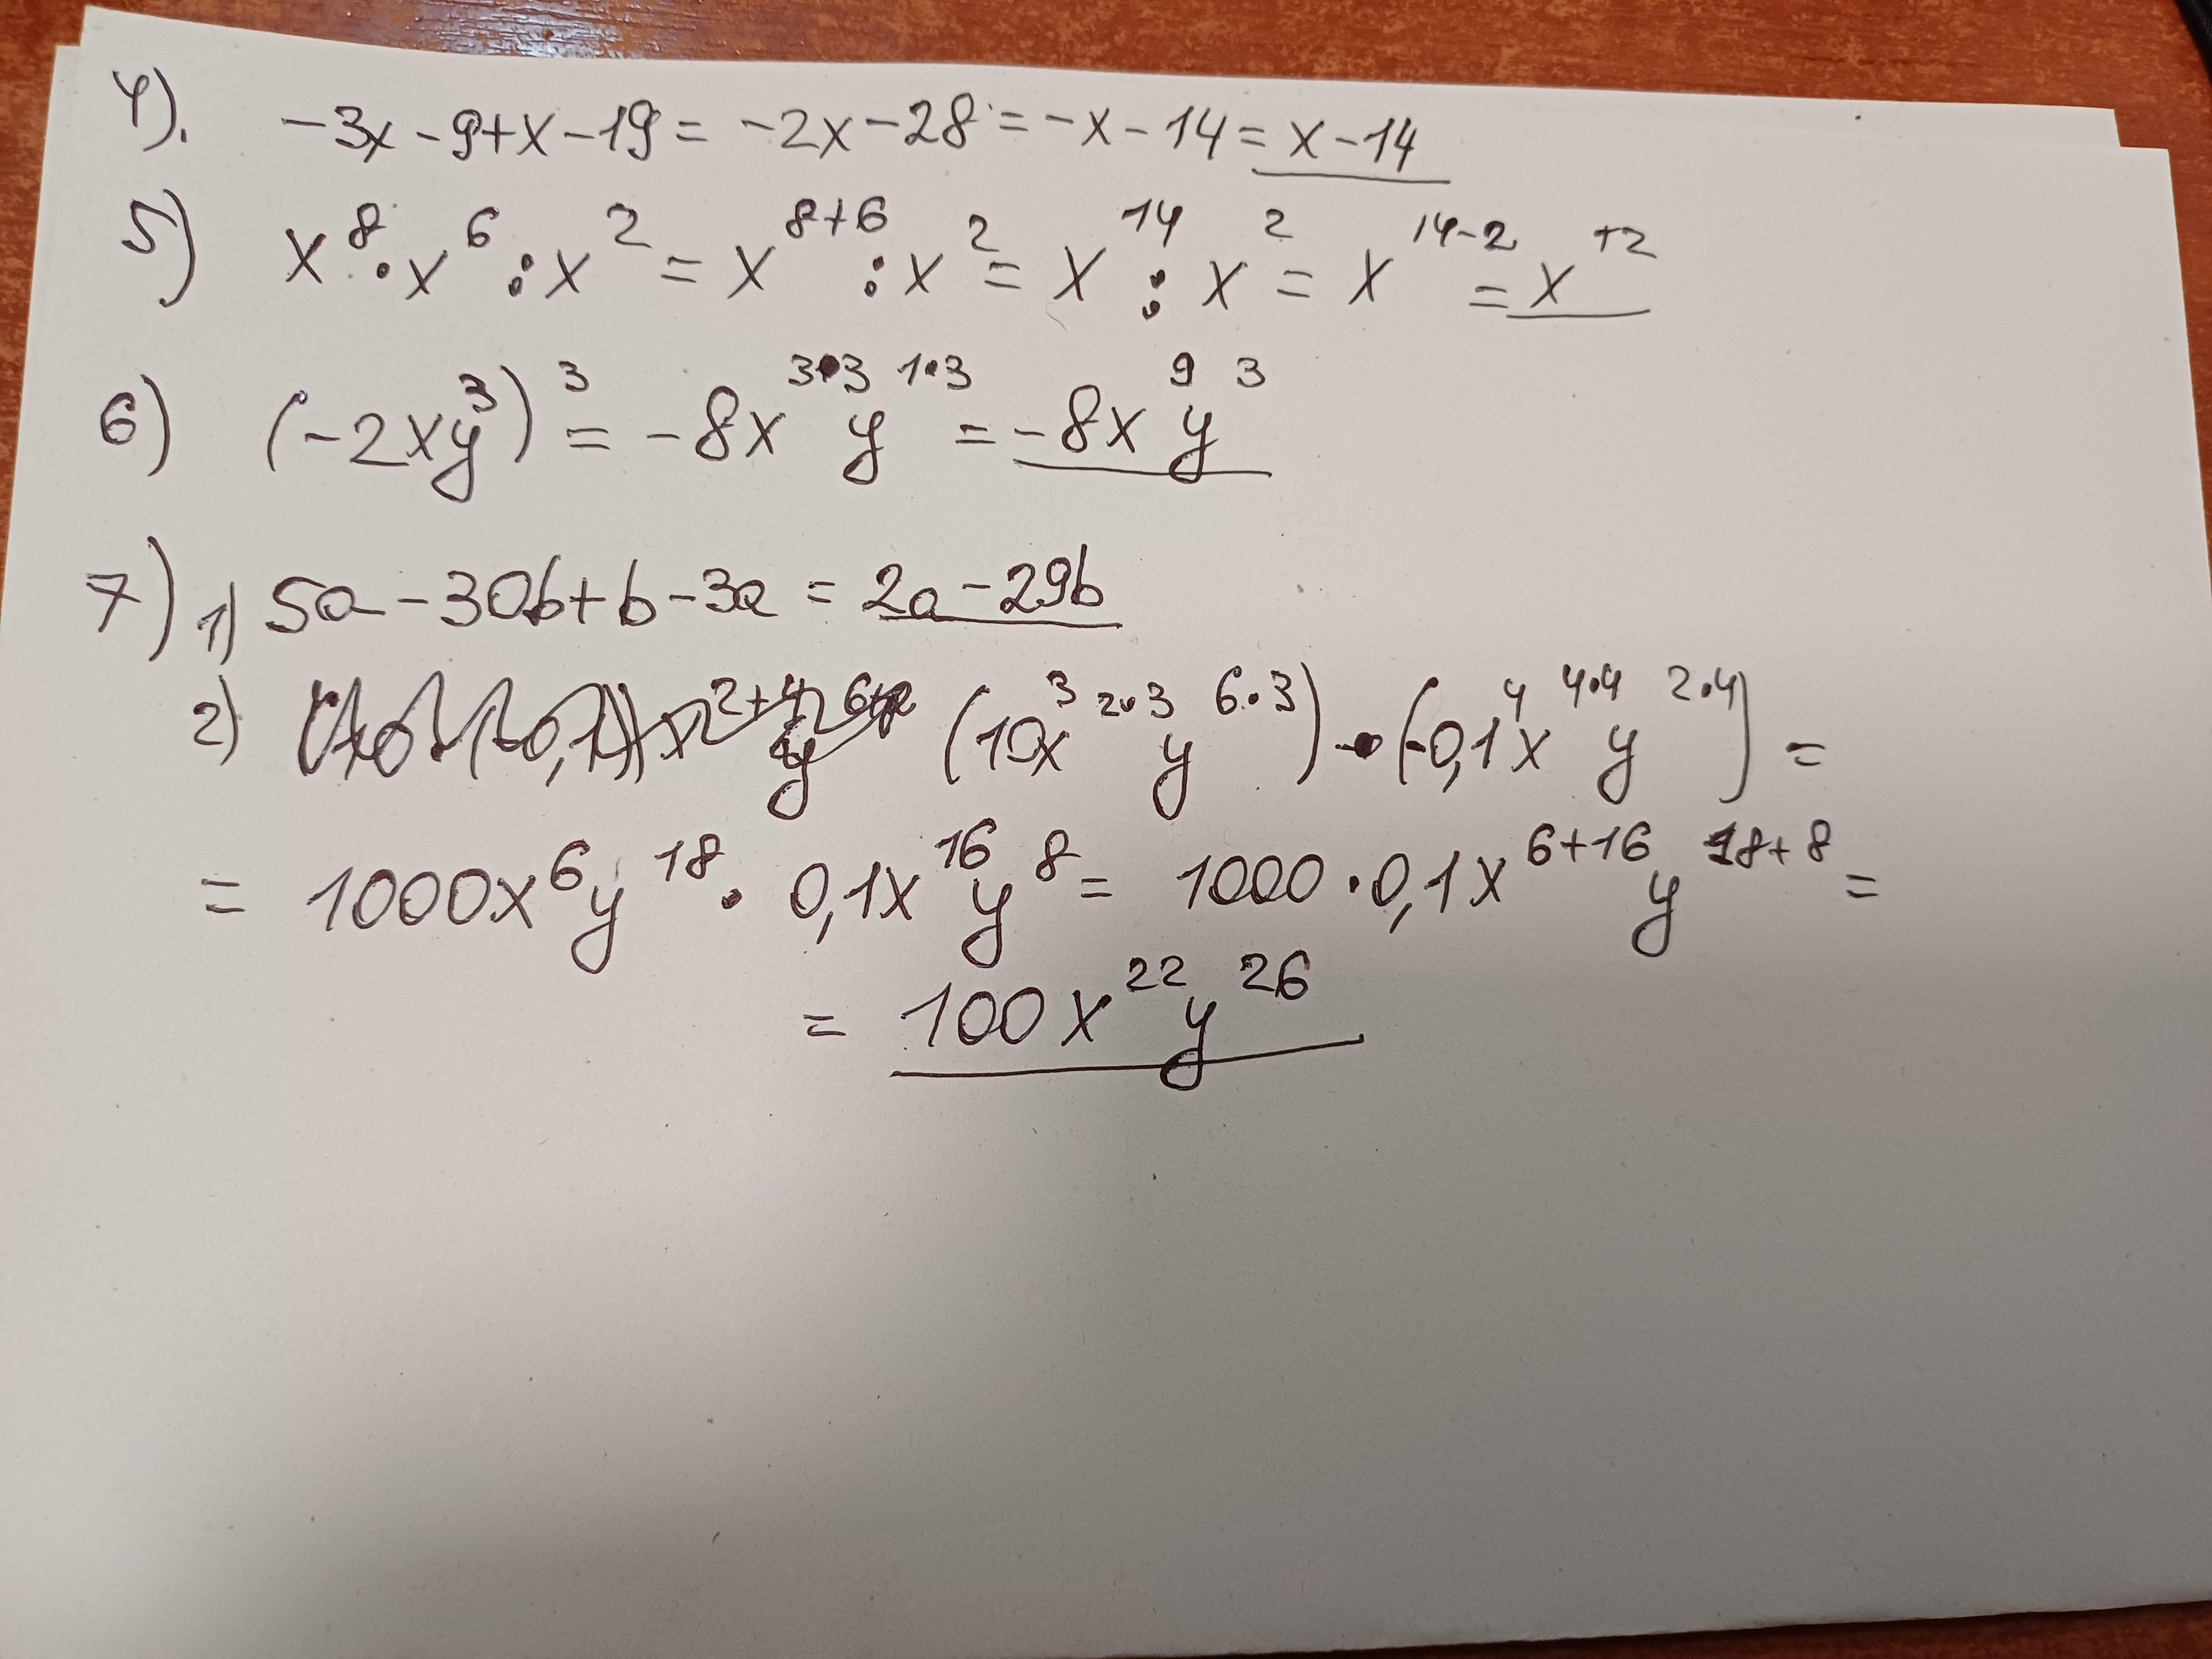 4). -3x-9+x-19 = -2x-28 = -x-14 = x-14
5) x⁸·x⁶:x² = x⁸⁺⁶:x² = x¹⁴:x² = x¹⁴⁻² = x¹²
6) (-2xy³)³ = -8x³·³y¹·³ = -8x⁹y³
7) 1) 5a-30b+b-3a = 2a-29b
2) (10x³ ²·³y⁶·³)·(-0,1x⁴ ⁴·⁴y²·⁴) =
= 1000x⁶y¹⁸·0,1x¹⁶y⁸ = 1000·0,1x⁶⁺¹⁶y¹⁸⁺⁸ =
= 100x²²y²⁶